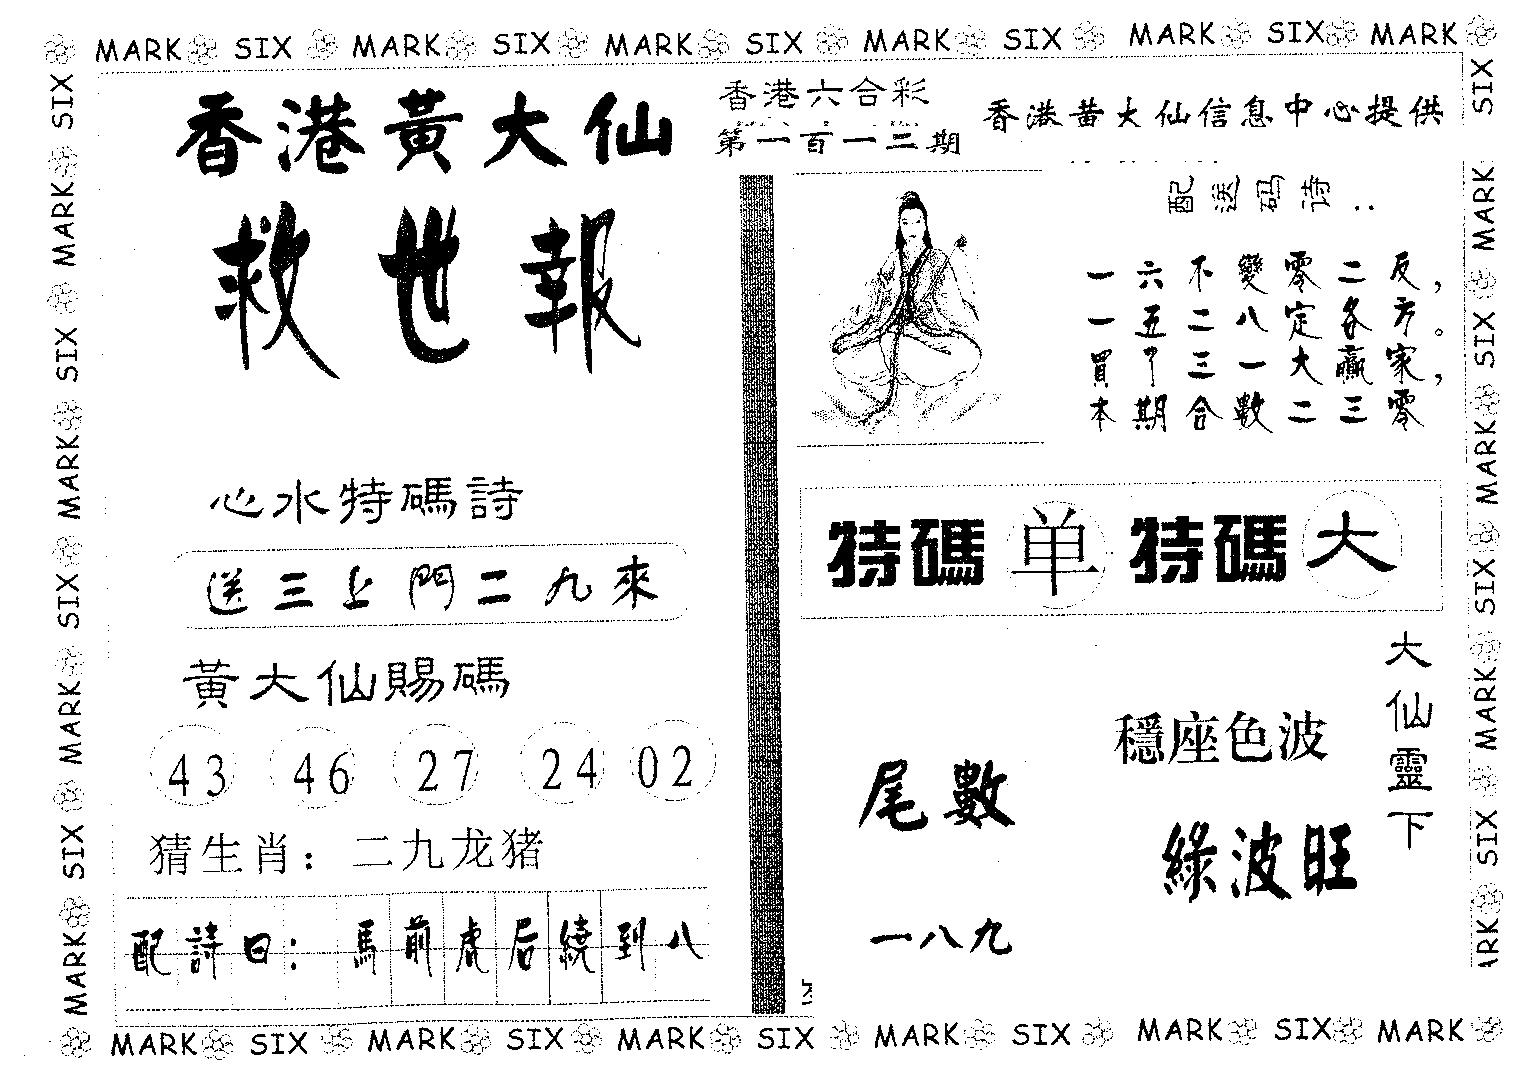 MARK SIX MARK SIX MARK SIX MARK SIX MARK SIX MARK
香港黃大仙
救世報
香港六合彩
第一百一十三期
香港黃大仙信息中心提供
配送码诗：
一六不變零二反，
一五二八定各方。
買了三一大贏家，
本期合數二三零
心水特碼詩
送三上門二九來
特碼 单 特碼 大
黃大仙賜碼
43 46 27 24 02
猜生肖：二九龙猪
配詩曰：馬前虎后繞到八
大仙靈下
穩座色波
綠波旺
尾數
一八九
MARK SIX MARK SIX MARK SIX MARK SIX MARK SIX MARK
SIX MARK SIX MARK SIX MARK SIX MARK
SIX MARK SIX MARK SIX MARK SIX ARK